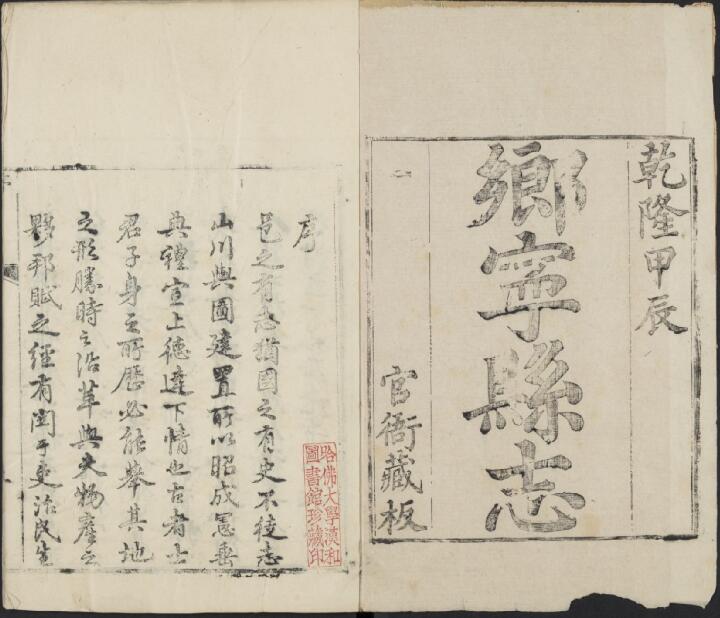 乾隆甲辰
鄉寧縣志
官衙藏板
序
邑之有志猶國之有史不徒志
山川與圖建置所以昭成憲垂
典禮宣上德達下情也古者士
君子身之所歷必能舉其地
之形勝時之沿革與夫物產之
夥邦賦之經有關于吏治民生
哈佛大學漢和
圖書館珍藏印